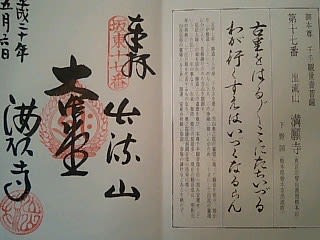 御本尊 千手観世音菩薩
第十七番 出流山 満願寺
古里をはるばるここにたちいづる
わが行くすえはいづくなるらん
下野国
奉拝
坂東十七番
出流山
大悲堂
満願寺
平成二十年
五月六日